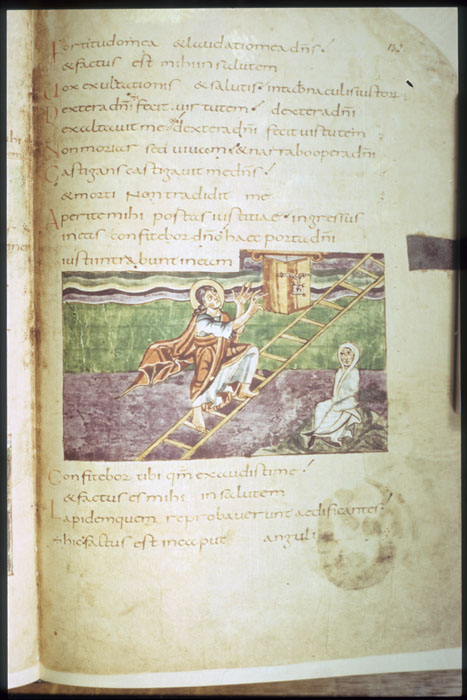 Fortitudo mea & laudatio mea dns.
& factus est mihi in salutem
Uox exultationis & salutis. in tabernaculis iustor
Dextera dni fecit uirtutem. dextera dni
exaltauit me. dextera dni fecit uirtutem
Non moriar sed uiuam. & narrabo opera dni
Castigans castigauit me dns.
& morti non tradidit me
Aperite mihi portas iustitiae. ingressus
in eas confitebor dno. haec porta dni
iusti intrabunt in eam
Confitebor tibi qm exaudisti me.
& factus es mihi in salutem
Lapidem quem reprobauerunt aedificantes.
hic factus est in caput anguli